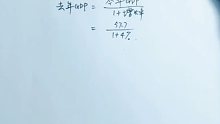 去年GDP = 今年GDP / 1+增长率
= 43.7 / 1+4%